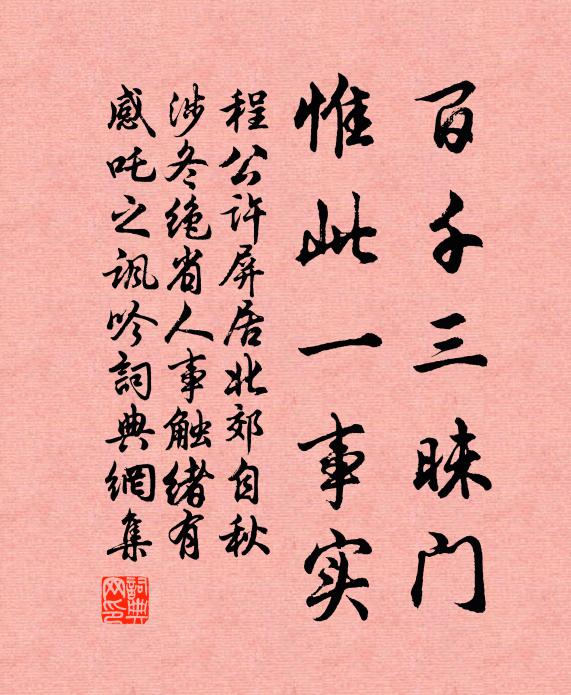 百千三昧门
惟此一事实
程公许屏居北郊自秋
涉冬绝省人事触绪有
感吒之讽吟詞典網集
詞典網印